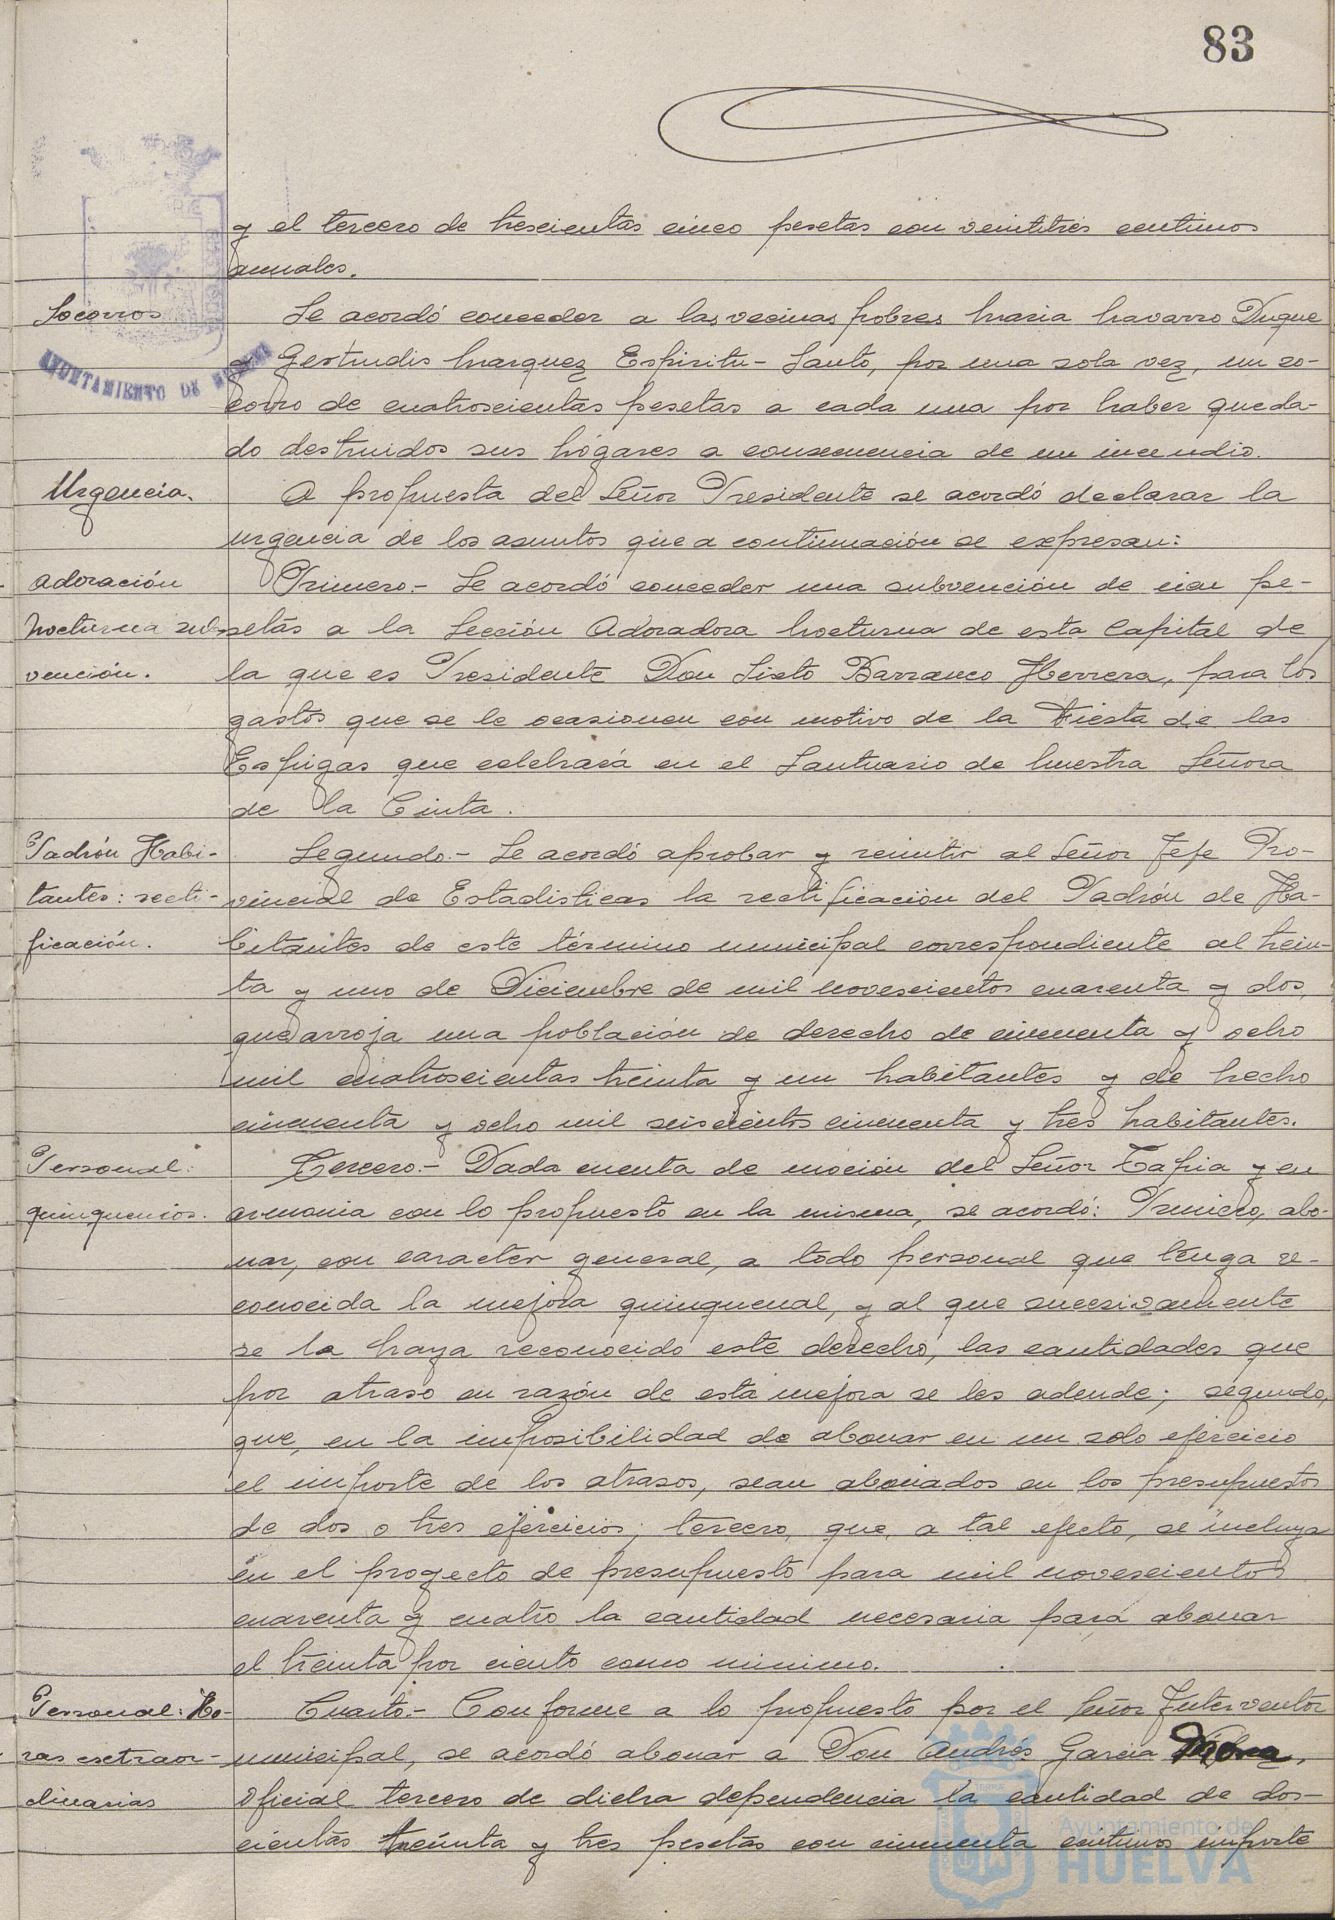 83
y el tercero de trescientas cinco pesetas con veintitrés centimos
anuales.
Socorros
Se acordó conceder a las vecinas pobres Maria Navarro Duque
y Gertrudis Marquez Espiritu-Santo, por una sola vez, un so-
corro de cuatroscientas pesetas a cada una por haber queda-
do destruidos sus hogares a consecuencia de un incendio.
AYUNTAMIENTO DE HUELVA
Urgencia.
A propuesta del Señor Presidente se acordó declarar la
urgencia de los asuntos que a continuación se expresan:
Adoración
Nocturna sub-
vención.
Primero.- Se acordó conceder una subvención de cien pe-
setas a la Sección Adoradora Nocturna de esta Capital de
la que es Presidente Don Sixto Barranco Herrera, para los
gastos que se le ocasionen con motivo de la Fiesta de las
Espigas que celebrará en el Santuario de Nuestra Señora
de la Cinta.
Padrón Habi-
tantes: recti-
ficación.
Segundo.- Se acordó aprobar y remitir al Señor Jefe Pro-
vincial de Estadisticas la rectificación del Padrón de Ha-
bitantes de este término municipal correspondiente al trein-
ta y uno de Diciembre de mil novescientos cuarenta y dos,
que arroja una población de derecho de cincuenta y ocho
mil cuatroscientas treinta y un habitantes y de hecho
cincuenta y ocho mil seiscientos cincuenta y tres habitantes.
Personal:
quinquenios.
Tercero.- Dada cuenta de moción del Señor Tapia y en
armonia con lo propuesto en la misma, se acordó: Primero, abo-
nar, con caracter general, a todo personal que tenga re-
conocida la mejora quinquenal, y al que sucesivamente
se la haya reconocido este derecho, las cantidades que
por atraso en razón de esta mejora se les adeude; segundo,
que, en la imposibilidad de abonar en un solo ejercicio
el importe de los atrasos, sean abonados en los presupuestos
de dos o tres ejercicios; tercero, que, a tal efecto, se incluya
en el proyecto de presupuesto para mil novescientos
cuarenta y cuatro la cantidad necesaria para abonar
el treinta por ciento como minimo.
Personal: Ho-
ras extraor-
dinarias
Cuarto.- Conforme a lo propuesto por el Señor Interventor
municipal, se acordó abonar a Don Andrés Garcia Mora,
oficial tercero de dicha dependencia la cantidad de dos-
cientas treinta y tres pesetas con cincuenta centimos importe
Ayuntamiento de
HUELVA